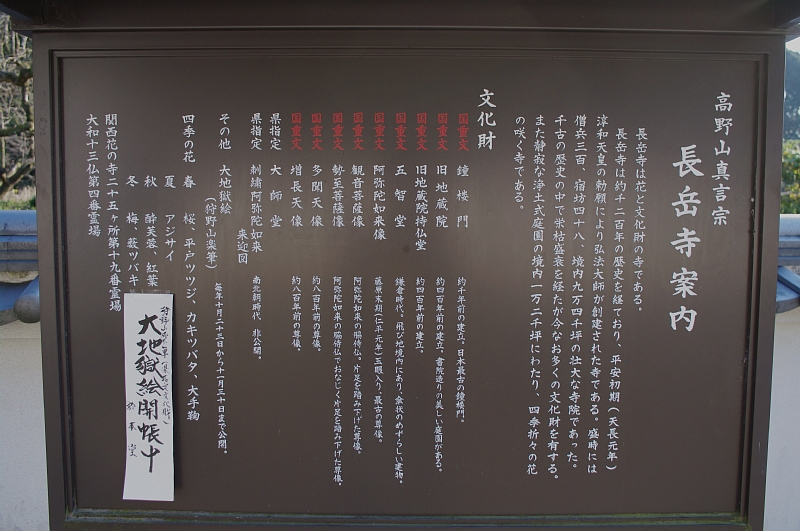 高野山真言宗
長岳寺案内
長岳寺は花と文化財の寺である。
長岳寺は約千二百年の歴史を経ており、平安初期（天長元年）
淳和天皇の勅願により弘法大師が創建された寺である。盛時には
僧兵三百、宿坊四十八、境内九万四千坪の壮大な寺院であった。
千古の歴史の中で栄枯盛衰を経たが今なお多くの文化財を有する。
また静寂な浄土式庭園の境内一万二千坪にわたり、四季折々の花
の咲く寺である。
文化財
国重文 鐘楼門 約千年前の建立。日本最古の鐘楼門。
国重文 旧地蔵院 約四百年前の建立、書院造りの美しい庭園がある。
国重文 旧地蔵院持仏堂 約四百年前の建立。
国重文 五智堂 鎌倉時代。飛び地境内にあり、傘状のめずらしい建物。
国重文 阿弥陀如来像 藤原末期（仁平元年）玉眼入り・最古の尊像。
国重文 観音菩薩像 阿弥陀如来の脇侍仏。片足を踏み下げた尊像。
国重文 勢至菩薩像 阿弥陀如来の脇侍仏でおなじく片足を踏み下げた尊像。
国重文 多聞天像 約八百年前の尊像。
国重文 増長天像 約八百年前の尊像。
県指定 大師堂
県指定 刺繍阿弥陀如来
来迎図 南北朝時代 非公開。
その他 大地獄絵
（狩野山楽筆） 毎年十月二十三日から十一月三十日まで公開。
四季の花 春 桜、平戸ツツジ、カキツバタ、大手鞠
夏 アジサイ
秋 酔芙蓉、紅葉
冬 梅、藪ツバキ
関西花の寺二十五ヶ所第十九番霊場
大和十三仏第四番霊場
大地獄絵開帳中
於本堂